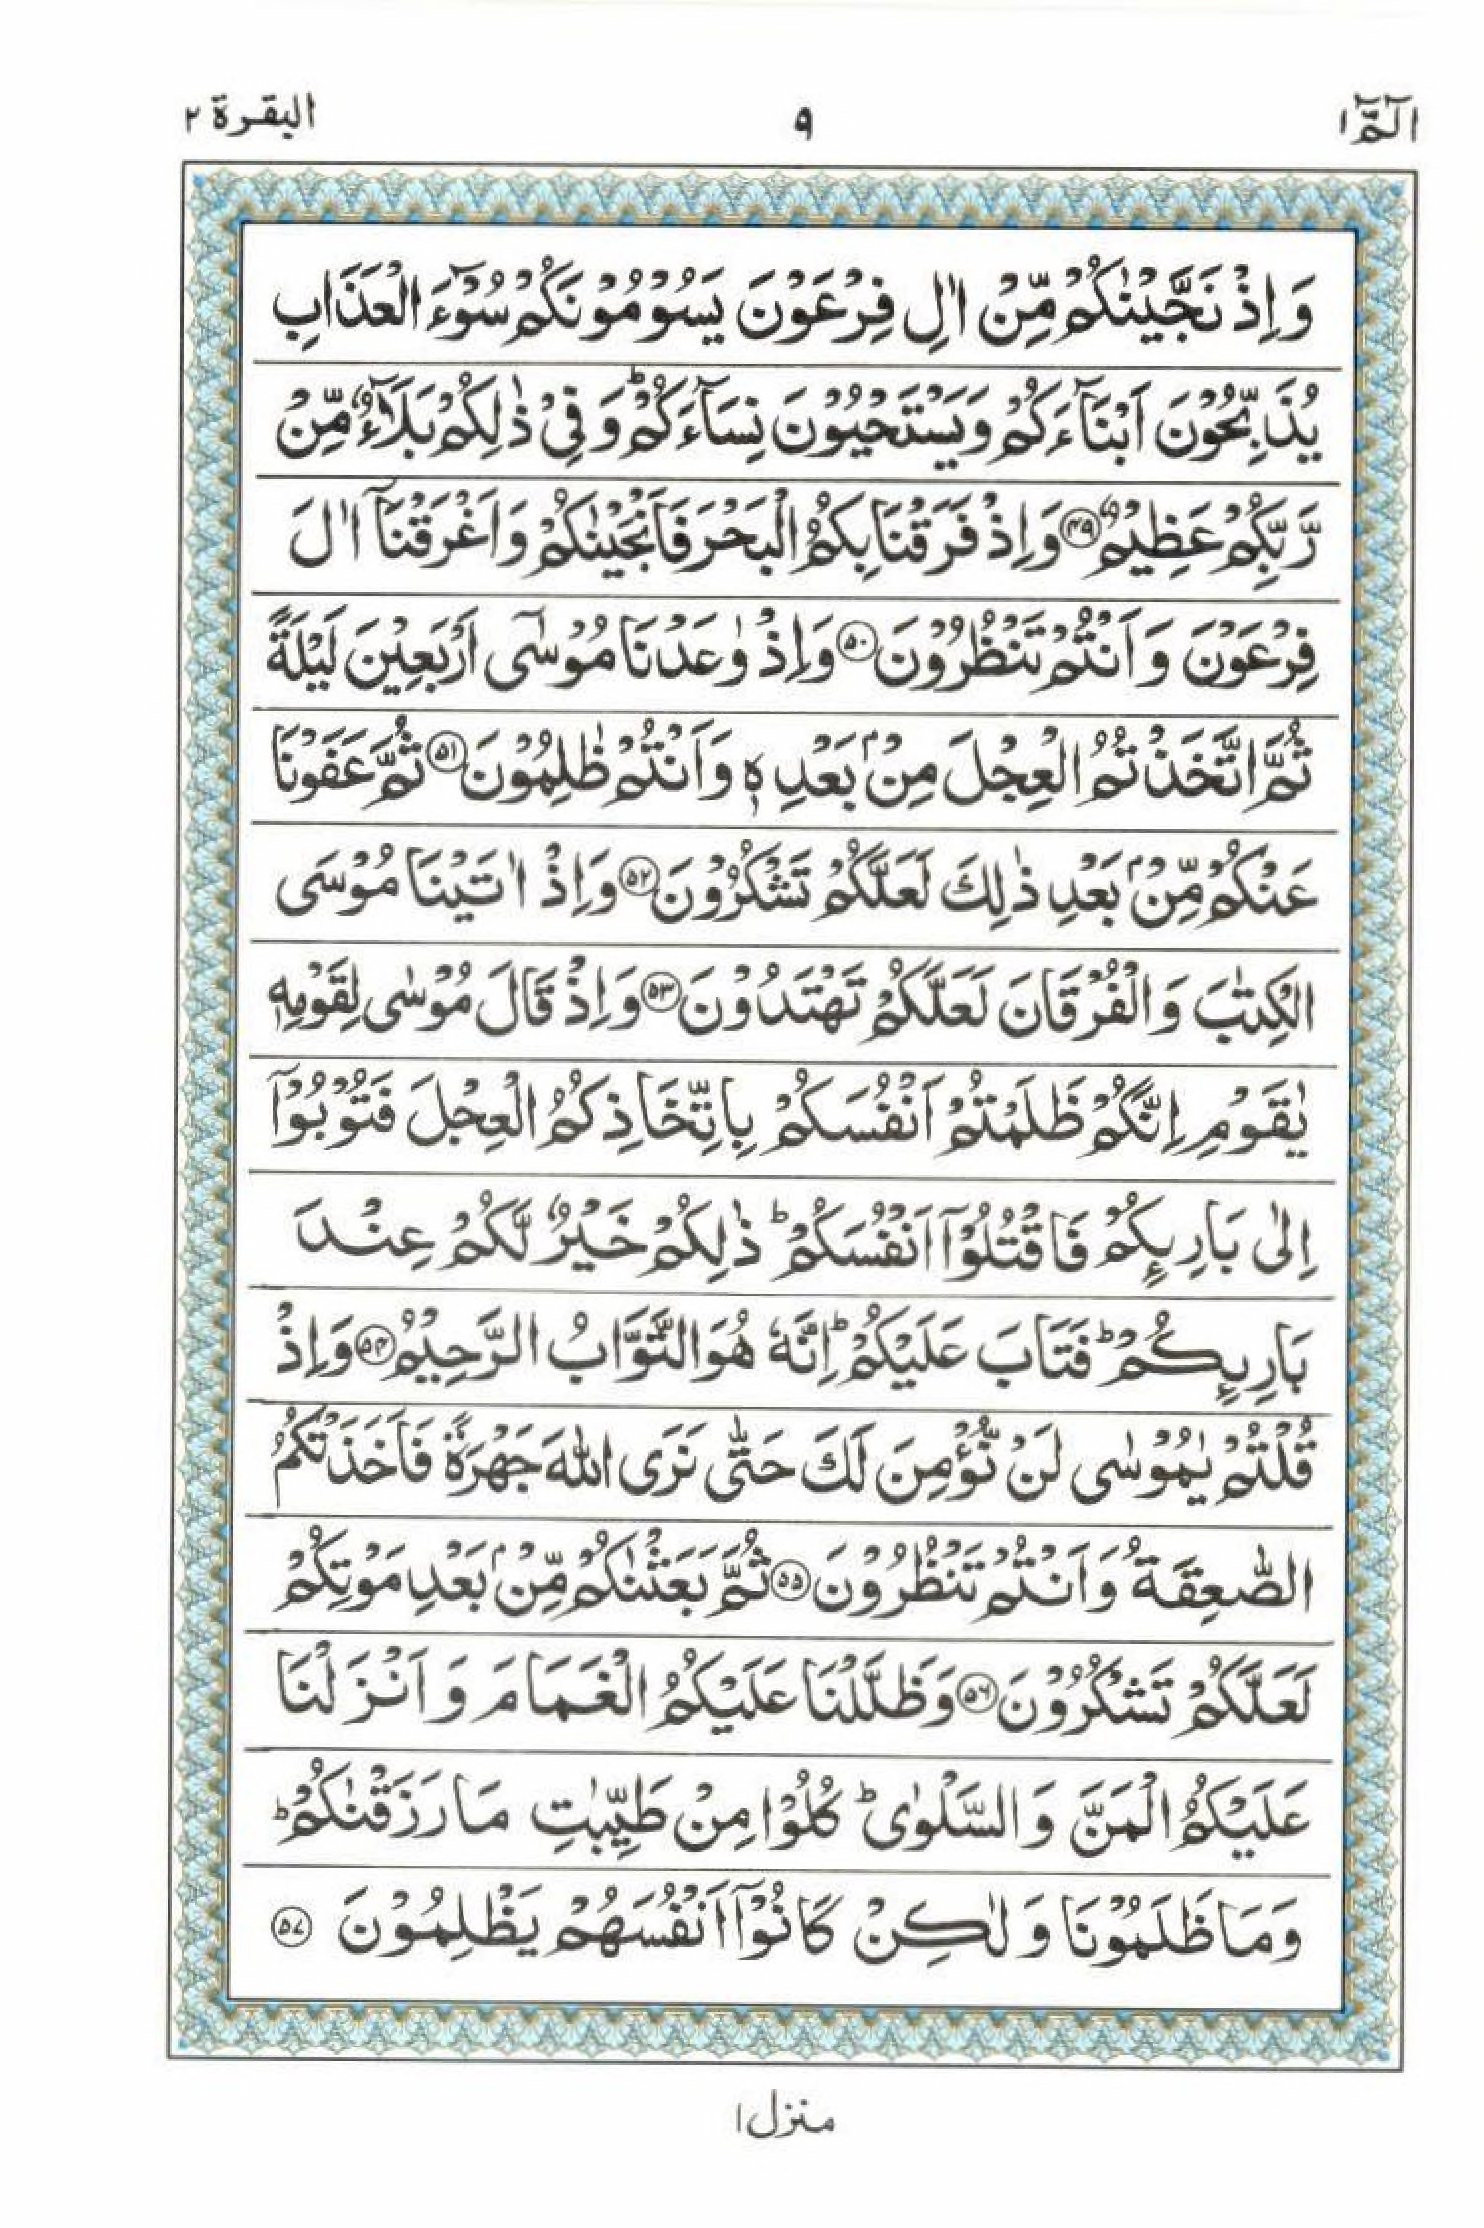 الٓمّٓ ۱
۹
البقرة ۲
وَاِذْ نَجَّيْنٰكُمْ مِّنْ اٰلِ فِرْعَوْنَ يَسُوْمُوْنَكُمْ سُوْٓءَ الْعَذَابِ
يُذَبِّحُوْنَ اَبْنَآءَكُمْ وَيَسْتَحْيُوْنَ نِسَآءَكُمْ ؕ وَفِيْ ذٰلِكُمْ بَلَآءٌ مِّنْ
رَّبِّكُمْ عَظِيْمٌ ﴿۴۹﴾ وَاِذْ فَرَقْنَا بِكُمُ الْبَحْرَ فَاَنْجَيْنٰكُمْ وَاَغْرَقْنَآ اٰلَ
فِرْعَوْنَ وَاَنْتُمْ تَنْظُرُوْنَ ﴿۵۰﴾ وَاِذْ وٰعَدْنَا مُوْسٰٓى اَرْبَعِيْنَ لَيْلَةً
ثُمَّ اتَّخَذْتُمُ الْعِجْلَ مِنْۢ بَعْدِهٖ وَاَنْتُمْ ظٰلِمُوْنَ ﴿۵۱﴾ ثُمَّ عَفَوْنَا
عَنْكُمْ مِّنْۢ بَعْدِ ذٰلِكَ لَعَلَّكُمْ تَشْكُرُوْنَ ﴿۵۲﴾ وَاِذْ اٰتَيْنَا مُوْسَى
الْكِتٰبَ وَالْفُرْقَانَ لَعَلَّكُمْ تَهْتَدُوْنَ ﴿۵۳﴾ وَاِذْ قَالَ مُوْسٰى لِقَوْمِهٖ
يٰقَوْمِ اِنَّكُمْ ظَلَمْتُمْ اَنْفُسَكُمْ بِاتِّخَاذِكُمُ الْعِجْلَ فَتُوْبُوْٓا
اِلٰى بَارِىِٕكُمْ فَاقْتُلُوْٓا اَنْفُسَكُمْ ؕ ذٰلِكُمْ خَيْرٌ لَّكُمْ عِنْدَ
بَارِىِٕكُمْ ؕ فَتَابَ عَلَيْكُمْ ؕ اِنَّهٗ هُوَ التَّوَّابُ الرَّحِيْمُ ﴿۵۴﴾ وَاِذْ
قُلْتُمْ يٰمُوْسٰى لَنْ نُّؤْمِنَ لَكَ حَتّٰى نَرَى اللّٰهَ جَهْرَةً فَاَخَذَتْكُمُ
الصّٰعِقَةُ وَاَنْتُمْ تَنْظُرُوْنَ ﴿۵۵﴾ ثُمَّ بَعَثْنٰكُمْ مِّنْۢ بَعْدِ مَوْتِكُمْ
لَعَلَّكُمْ تَشْكُرُوْنَ ﴿۵۶﴾ وَظَلَّلْنَا عَلَيْكُمُ الْغَمَامَ وَاَنْزَلْنَا
عَلَيْكُمُ الْمَنَّ وَالسَّلْوٰى ؕ كُلُوْا مِنْ طَيِّبٰتِ مَا رَزَقْنٰكُمْ ؕ
وَمَا ظَلَمُوْنَا وَلٰكِنْ كَانُوْٓا اَنْفُسَهُمْ يَظْلِمُوْنَ ﴿۵۷﴾
منزل ۱